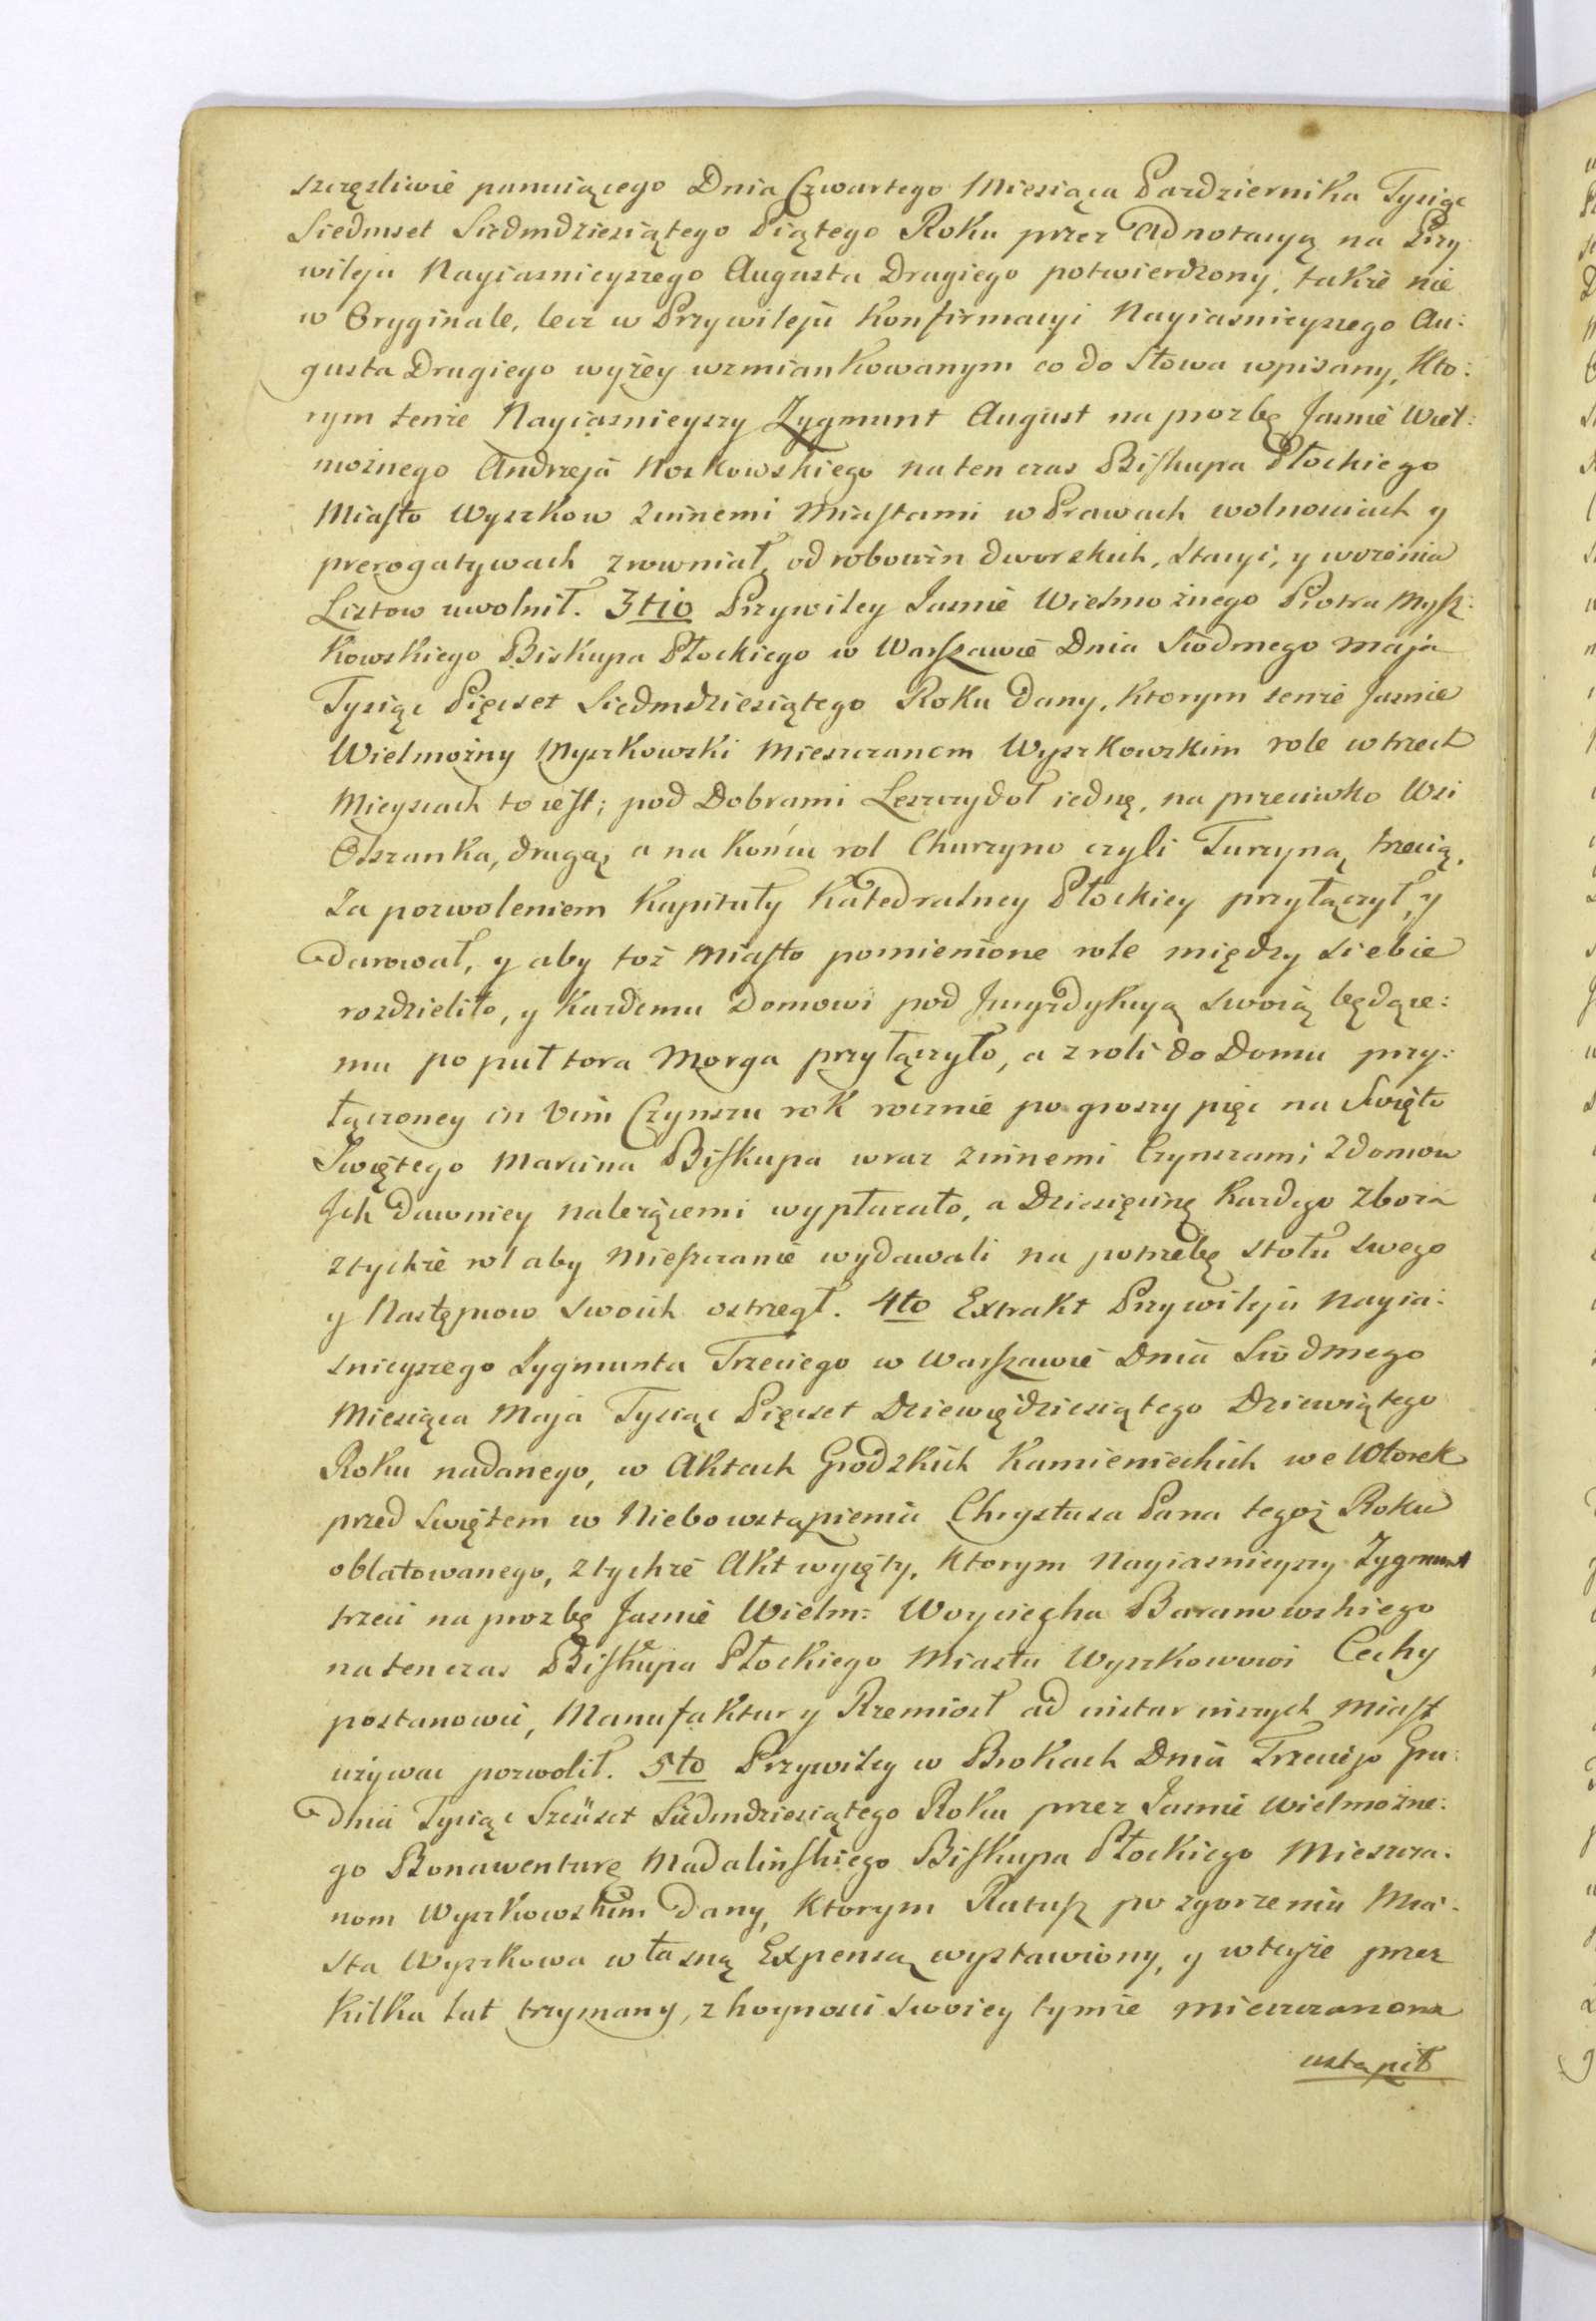 szczęsliwie panuiącego Dnia Czwartego Miesiąca Pazdziernika Tysiąc
Siedmset Siedmdziesiątego Piątego Roku przez Adnotacyą na Przy
wileju Nayiasnieyszego Augusta Drugiego potwierdzony, także nie
w Oryginale, lecz w Przywileju Konfirmacyi Nayiasnieyszego Au:
gusta Drugiego wyżey wzmiankowanym co do Słowa wpisany, Kto:
rym tenże Nayiasnieyszy Zygmunt August na prozbę Jasnie Wiel:
możnego Andrzeja Noskowskiego na ten czas Biskupa Płockiego
Miasto Wyszkow z innemi Miastami w Prawach wolnosciach y
prerogatywach zrowniał, od robocizn dworskich, Stacyi, y wożenia
Listow uwolnił. 3tio Przywiley Jasnie Wielmożnego Piotra Mysz:
kowskiego Biskupa Płockiego w Warszawie Dnia Siodmego Maja
Tysiąc Pięcset Siedmdziesiątego Roku dany, Ktorym tenże Jasnie
Wielmożny Myszkowski Mieszczanom Wyszkowskim role w trzech
Mieyscach to iest; pod Dobrami Leszczydoł iednę, na przeciwko Wsi
Olszanka, drugą, a na Końcu rol Churzyno czyli Turzyną trzecią,
Za pozwoleniem Kapituły Katedralney Płockiey przyłączył, y
darował, y aby toż Miasto pomienione role między siebie
rozdzieliło, y Każdemu Domowi pod Juryzdykcyą swoią będące:
mu po puł tora Morga przyłączyło, a z roli do Domu przy:
łączoney in vim Czynszu rok rocznie po groszy pięc na Swięto
Swiętego Marcina Biskupa wraz z innemi Czynszami z Domow
Jch dawniey należącemi wypłacało, a Dziesięcinę Każdego zboża
z tychże rol aby Mieszczanie wydawali na potrzebę stołu swego
y Następcow swoich ostrzegł. 4to Extrakt Przywileju Nayia:
snieyszego Zygmunta Trzeciego w Warszawie Dnia Siodmego
Miesiąca Maja Tysiąc Pięcset Dziewiędziesiątego Dziewiątego
Roku nadanego, w Aktach Grodzkich Kamienieckich we Wtorek
przed Swiętem w Niebowstąpienia Chrystusa Pana tegoż Roku
oblatowanego, z tychże Akt wyięty, Ktorym Nayiasnieyszy Zygmunt
trzeci na prozbę Jasnie Wielm: Woyciecha Baranowskiego
na ten czas Biskupa Płockiego Miastu Wyszkowowi Cechy
postanowic, Manufaktur y Rzemiosł ad instar inszych Miast
używac pozwolił. 5to Przywiley w Brokach Dnia Trzeciego Gru:
dnia Tysiąc Szescset Siedmdziesiątego Roku przez Jasnie Wielmożne:
go Bonawenturę Madalinskiego Biskupa Płockiego Mieszcza:
nom Wyszkowskim dany, Ktorym Ratusz po zgorzeniu Mia:
sta Wyszkowa własną Expensą wystawiony, y w teyże przez
Kilka lat trzymany, z hoynosci swoiey tymże Mieszczanom
ustąpił